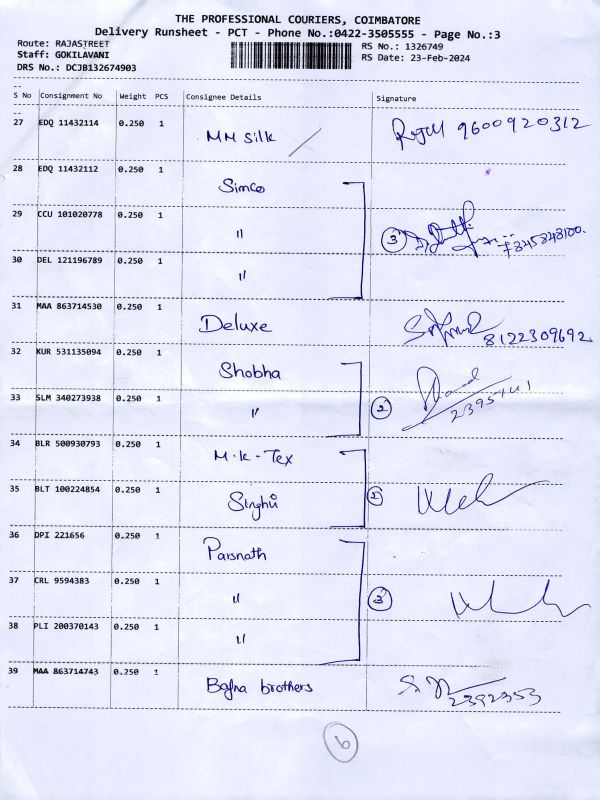 THE PROFESSIONAL COURIERS, COIMBATORE
Delivery Runsheet - PCT - Phone No.:0422-3505555 - Page No.:3
Route: RAJASTREET
RS No.: 1326749
Staff: GOKILAVANI
RS Date: 23-Feb-2024
DRS No.: DCJB132674903
S No Consignment No Weight PCS Consignee Details Signature
27 EDQ 11432114 0.250 1 MM Silk 9600920312
28 EDQ 11432112 0.250 1 Simco
29 CCU 101020778 0.250 1 " 3
30 DEL 121196789 0.250 1 "
31 MAA 863714530 0.250 1 Deluxe 8122309692
32 KUR 531135094 0.250 1 Shobha
33 SLM 340273938 0.250 1 " 2
34 BLR 500930793 0.250 1 M.K-Tex
35 BLT 100224854 0.250 1 Singhii 2
36 DPI 221656 0.250 1 Parsnath
37 CRL 9594383 0.250 1 " 3
38 PLI 200370143 0.250 1 "
39 MAA 863714743 0.250 1 Bafna brothers 2392353
6